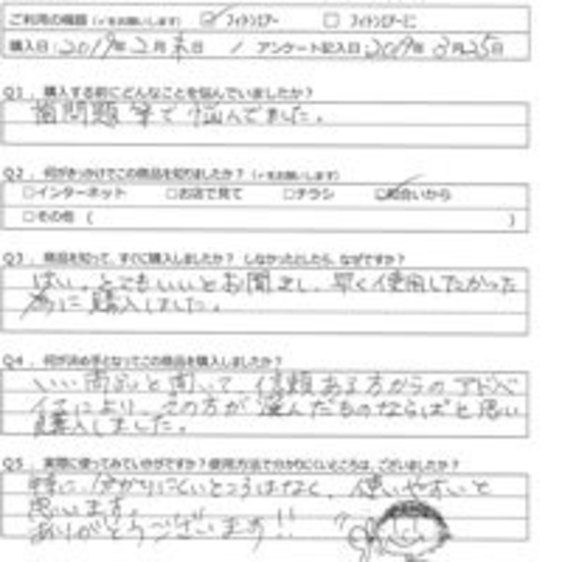 ご利用の機器（✓をお願いします） ☑ フィトンエアー □ フィトンエアーミニ
購入日：2019年 2月末日 / アンケート記入日：2019年 3月25日
Q1．購入する前にどんなことを悩んでいましたか？
歯問題等で悩んでました。
Q2．何がきっかけでこの商品を知りましたか？（✓をお願いします）
□インターネット □お店で見て □チラシ ☑知合いから
□その他（ ）
Q3．商品を知って、すぐに購入しましたか？ しなかったとしたら、なぜですか？
はい。とてもいいとお聞きし、早く使用したかった
為に購入しました。
Q4．何が決め手となってこの商品を購入しましたか？
いい商品と聞いて、信頼ある方からのアドバ
イスにより、その方が選んだものならばと思い
購入しました。
Q5．実際に使ってみていかがですか？使用方法で分かりにくいところは、ございましたか？
特に、分かりにくいところはなく、使いやすいと
思います。
ありがとうございます!!